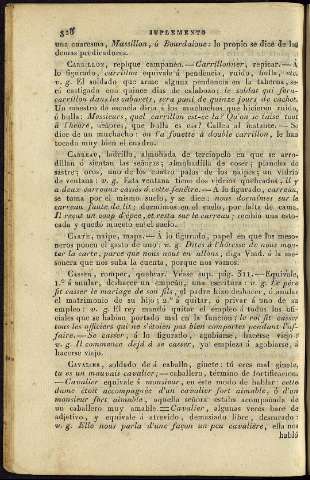 326 SUPLEMENTO
una cuaresma, Massillon, ó Bourdaloue: lo propio se dice de los
demas predicadores.
CARILLON, repique campanén. — Carrillonner, repicar. — A
lo figurado, carrillon equivale á pendencia, ruido, bulla, etc.
v. g. El soldado que arme alguna pendencia en la taberna, se-
rá castigado con quince dias de calabozo: le soldat qui fera
carrillon dans les cabarets, sera puni de quinze jours de cachot.
Un maestro de escuela dirá á los muchachos que hicieren ruido,
ó bulla: Messieurs, quel carrillon est-ce là? Qu'on se taise tout
à l'heure, señores, que bulla es esa? Callen al instante. — Se
dice de un muchacho: on l'a fouetté à double carrillon, le han
tocado muy bien el cuadro.
CARREAU, bolsillo, almohada de terciopelo en que se arro-
dillan ó sientan las señoras; almohadilla de coser; plancha de
sastre; oros, uno de los cuatro palos de los naipes; un vidrio
de ventana: v. g. Esta ventana tiene dos vidrios quebrados, il y
a deux carreaux cassés à cette fenêtre. — A lo figurado, carreau,
se toma por el mismo suelo, y se dice: nous dormîmes sur le
carreau faute de lit; dormimos en el suelo, por falta de cama.
Il reçut un coup d'épée, et resta sur le carreau; recibió una esto-
cada y quedó muerto en el suelo.
CARTE, naipe, mapa. — A lo figurado, papel en que los meso-
neros ponen el gasto de uno: v. g. Dites à l'hôtesse de nous mon-
ter la carte, parce que nous nous en allons, diga Vmd. á la me-
sonera que nos suba la cuenta, porque nos vamos.
CASSER, romper, quebrar. Véase sup. pág. 311. — Equivale,
1.º á anular, deshacer un empeño, una escritura: v. g. Le père
fit casser le mariage de son fils, el padre hizo deshacer, ó anular
el matrimonio de su hijo; 2.º á quitar, ó privar á uno de su
empleo: v. g. El rey mandó quitar el empleo á todos los ofi-
ciales que se habian portado mal en la funcion; le roi fit casser
tous les officiers qui ne s'étoient pas bien comportés pendant l'af-
faire. — Se casser, á lo figurado, agobiarse, hacerse viejo:
v. g. Il commence déjà à se casser, ya empieza á agobiarse, á
hacerse viejo.
CAVALIER, soldado de á caballo, ginete: tú eres mal ginete,
tu es un mauvais cavalier; — caballero, término de fortificacion.
— Cavalier equivale á monsieur, en este modo de hablar: cette
dame étoit accompagnée d'un cavalier fort aimable, ó d'un
monsieur fort aimable, aquella señora estaba acompañada de
un caballero muy amable. = Cavalier, algunas veces hace de
adjetivo, y equivale á atrevido, demasiado libre, desenredado:
v. g. Elle nous parla d'une façon un peu cavalière, ella nos
habló